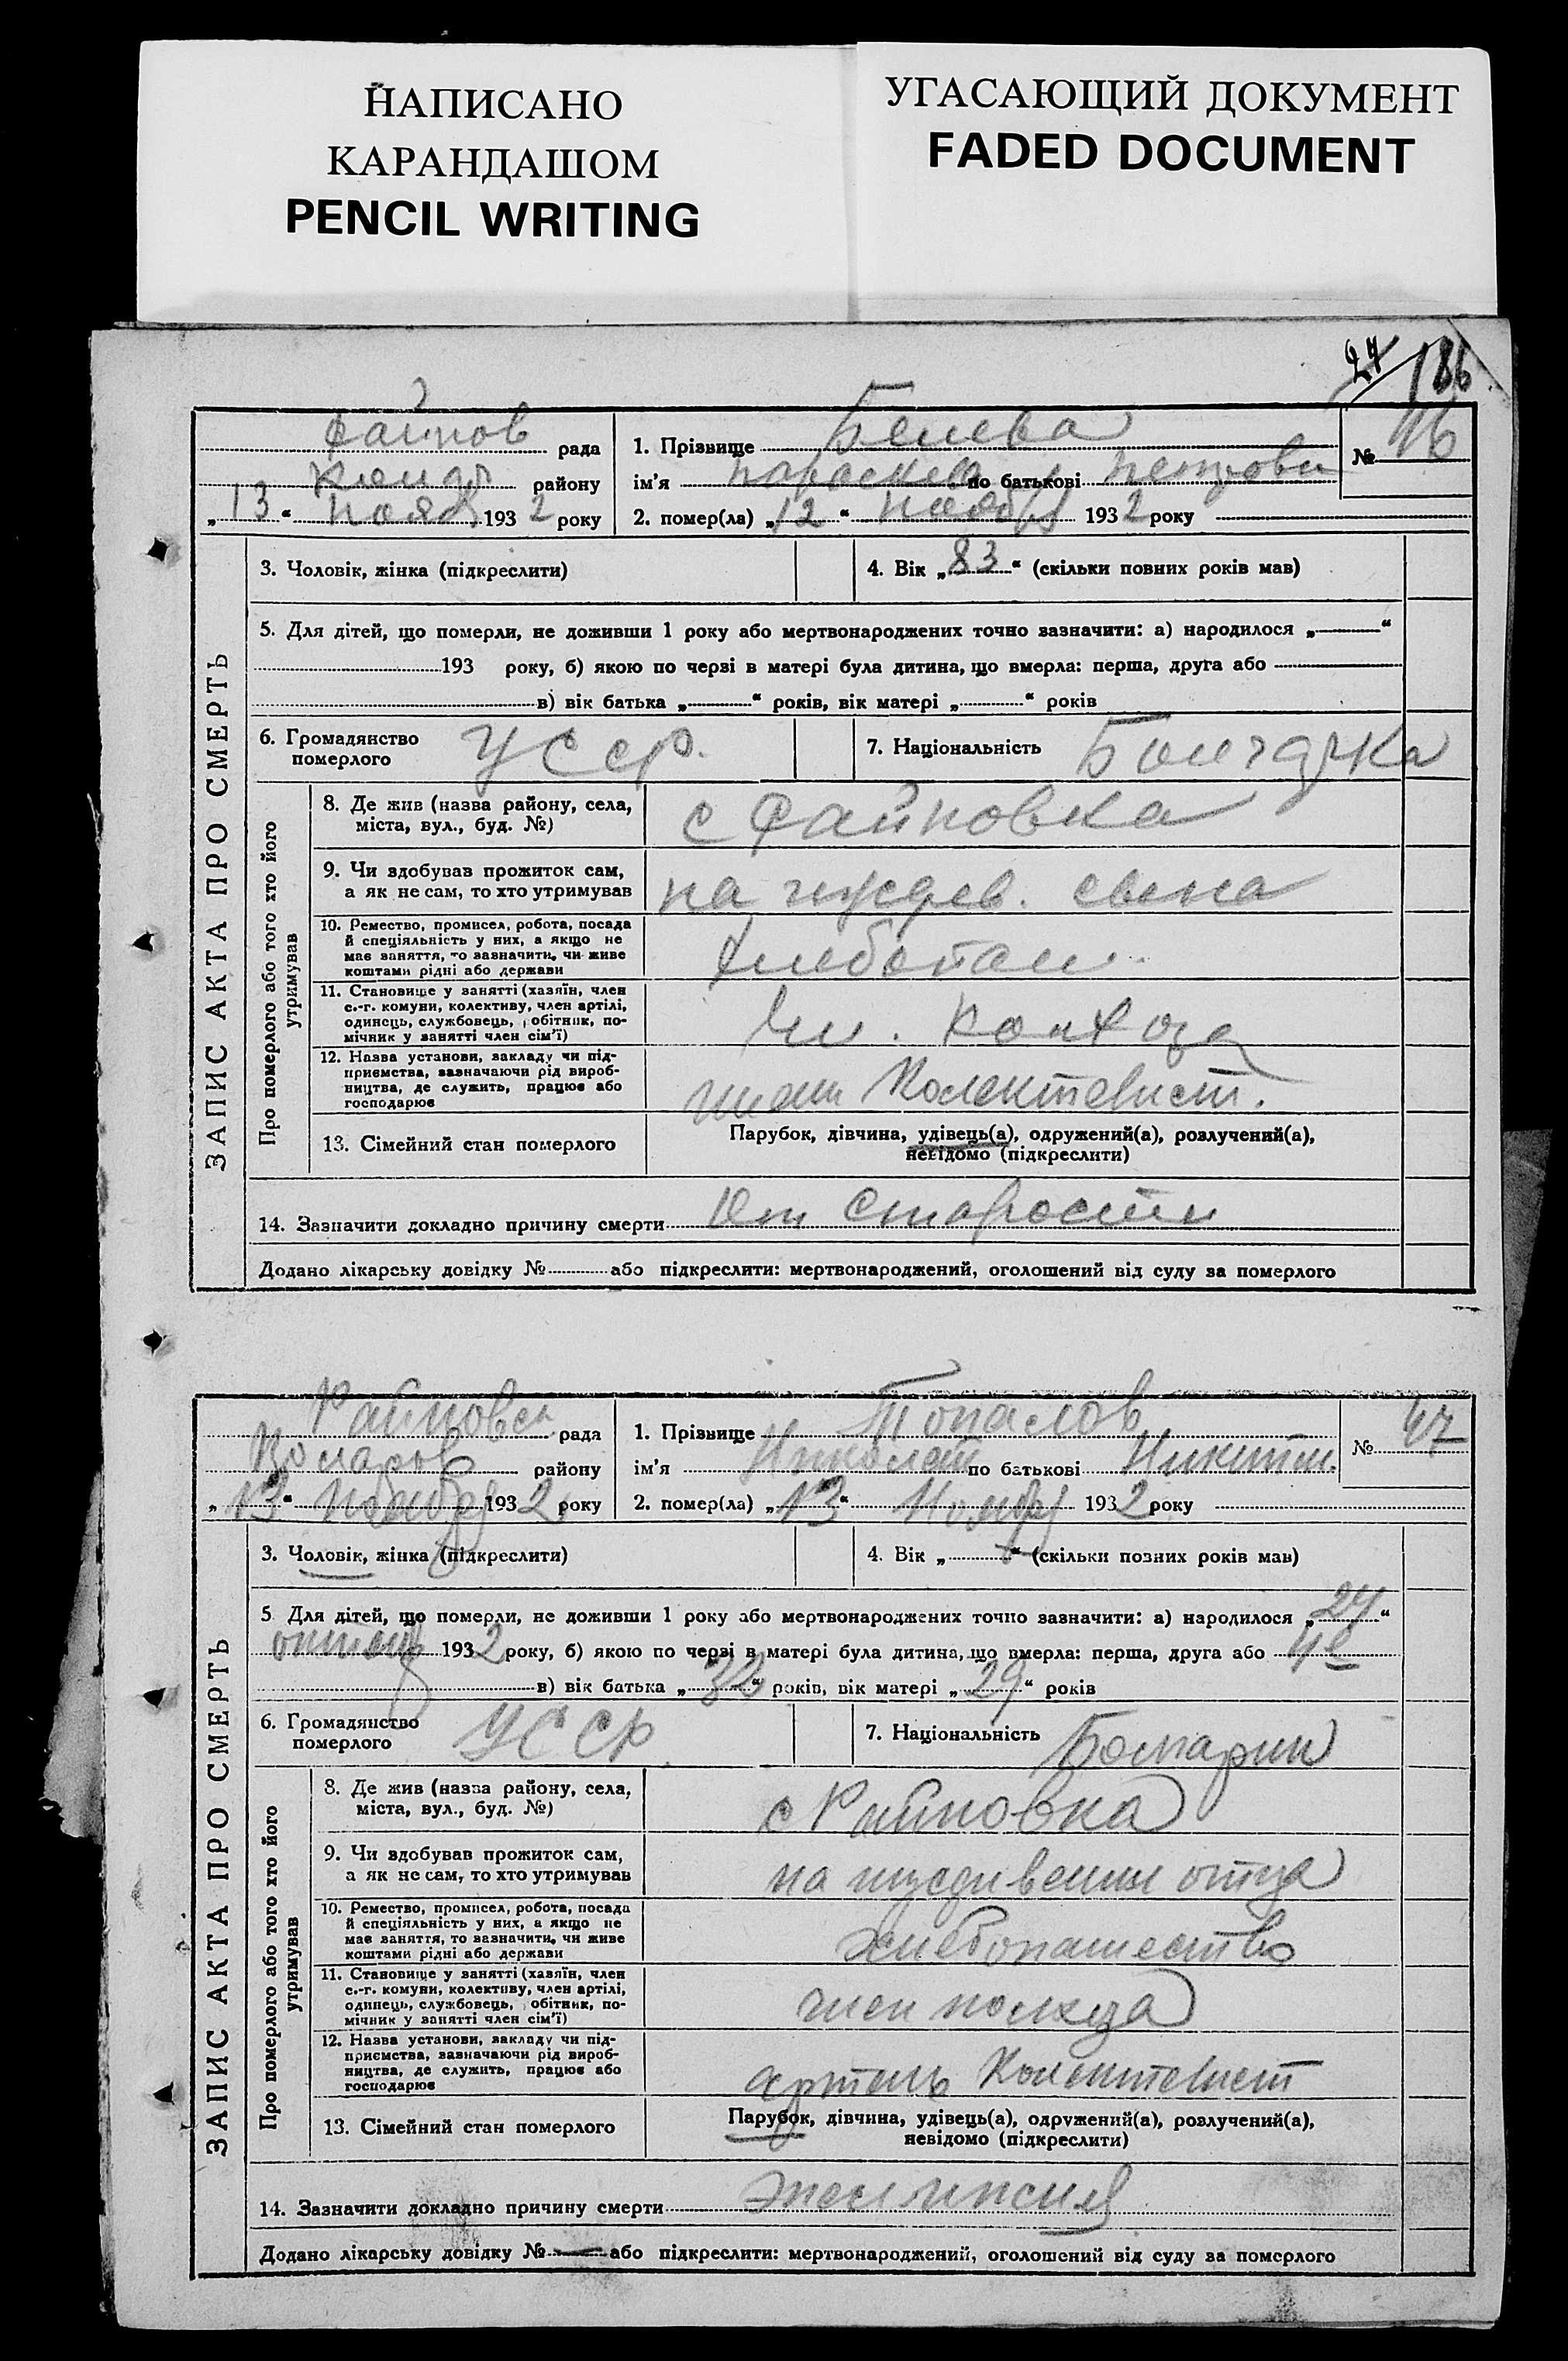 НАПИСАНО
КАРАНДАШОМ
PENCIL WRITING
УГАСАЮЩИЙ ДОКУМЕНТ
FADED DOCUMENT
27 186
ЗАПИС АКТА ПРО СМЕРТЬ
рада
району
„13“ 1932 року
1. Прізвище Белева
ім'я Параскева по батькові Петрови
2. помер(ла) „12“ ноябр 1932 року
№ 46
3. Чоловік, жінка (підкреслити)
4. Вік „83“ (скільки повних років мав)
5. Для дітей, що померли, не доживши 1 року або мертвонароджених точно зазначити: а) народилося „ “
193 року, б) якою по черзі в матері була дитина, що вмерла: перша, друга або
в) вік батька „ “ років, вік матері „ “ років
6. Громадянство
померлого
УССР.
7. Національність Болгарка
Про померлого або того хто його
утримував
8. Де жив (назва району, села,
міста, вул., буд. №)
9. Чи здобував прожиток сам,
а як не сам, то хто утримував
на иждев. сына
10. Ремество, промисел, робота, посада
й спеціяльність у них, а якщо не
має заняття, то зазначити, чи живе
коштами рідні або держави
11. Становище у занятті (хазяїн, член
с.-г. комуни, колективу, член артілі,
одинець, службовець, робітник, по-
мічник у занятті член сім'ї)
чл. колхоза
12. Назва установи, закладу чи під-
приємства, зазначаючи рід вироб-
ництва, де служить, працює або
господарює
Колективист.
13. Сімейний стан померлого
Парубок, дівчина, удівець(а), одружений(а), розлучений(а),
невідомо (підкреслити)
14. Зазначити докладно причину смерти От старости
Додано лікарську довідку № або підкреслити: мертвонароджений, оголошений від суду за померлого
ЗАПИС АКТА ПРО СМЕРТЬ
рада
району
„13“ ноября 1932 року
1. Прізвище Топалов
ім'я Николай по батькові Никитич.
2. помер(ла) „13“ Ноября 1932 року
№ 47
3. Чоловік, жінка (підкреслити)
4. Вік „ “ (скільки повних років мав)
5. Для дітей, що померли, не доживши 1 року або мертвонароджених точно зазначити: а) народилося „24“
октября 1932 року, б) якою по черзі в матері була дитина, що вмерла: перша, друга або 4е
в) вік батька „32“ років, вік матері „29“ років
6. Громадянство
померлого
УССР
7. Національність Болгарин
Про померлого або того хто його
утримував
8. Де жив (назва району, села,
міста, вул., буд. №)
9. Чи здобував прожиток сам,
а як не сам, то хто утримував
на иждивении отца
10. Ремество, промисел, робота, посада
й спеціяльність у них, а якщо не
має заняття, то зазначити, чи живе
коштами рідні або держави
хлебопашество
11. Становище у занятті (хазяїн, член
с.-г. комуни, колективу, член артілі,
одинець, службовець, робітник, по-
мічник у занятті член сім'ї)
член колхоза
12. Назва установи, закладу чи під-
приємства, зазначаючи рід вироб-
ництва, де служить, працює або
господарює
артель Колективист
13. Сімейний стан померлого
Парубок, дівчина, удівець(а), одружений(а), розлучений(а),
невідомо (підкреслити)
14. Зазначити докладно причину смерти
Додано лікарську довідку № або підкреслити: мертвонароджений, оголошений від суду за померлого